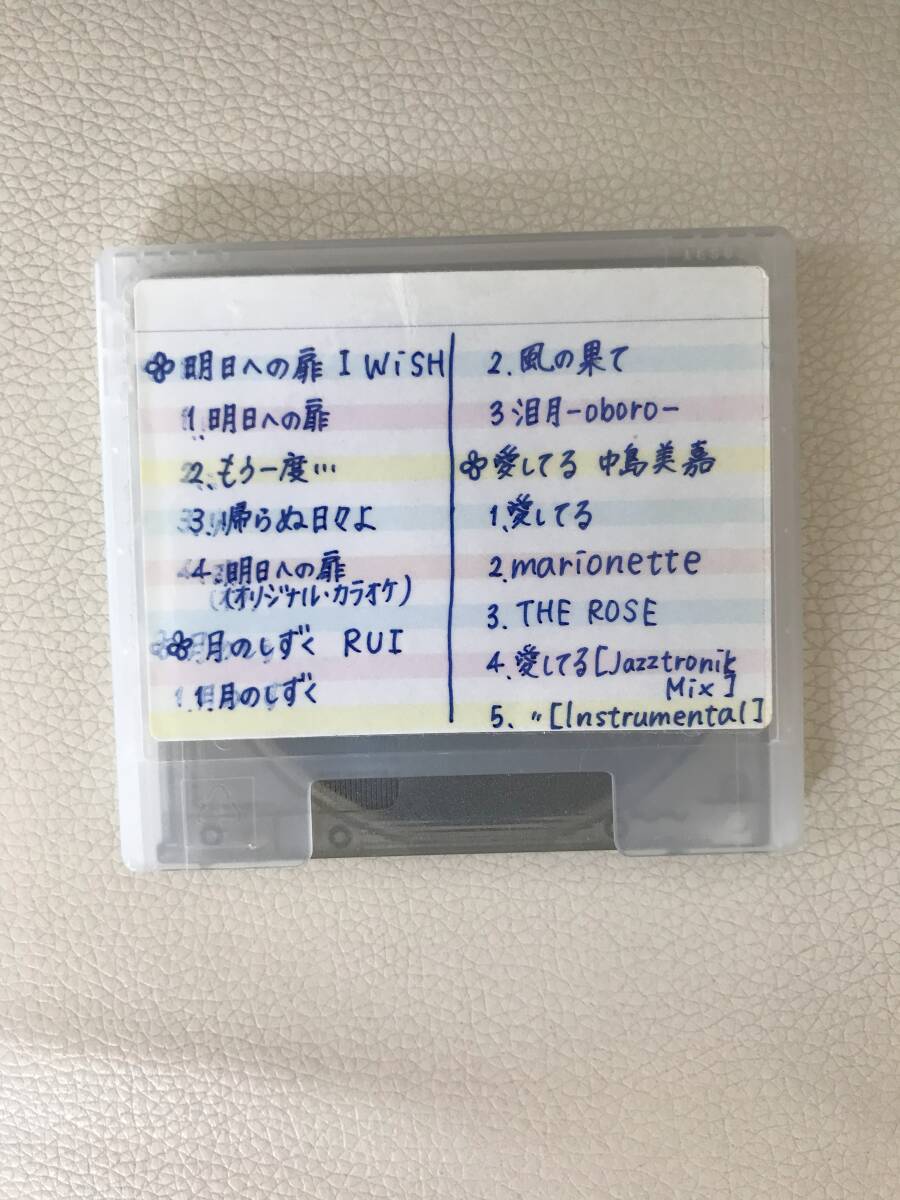 明日への扉 I WiSH
1. 明日への扉
2. もう一度…
3. 帰らぬ日々よ
4. 明日への扉
(オリジナル・カラオケ)
月のしずく RUI
1. 月のしずく
2.風の果て
3 泪月-oboro-
愛してる 中島美嘉
1. 愛してる
2. marionette
3. THE ROSE
4. 愛してる [Jazztronik
Mix]
5. 〃 [Instrumental]